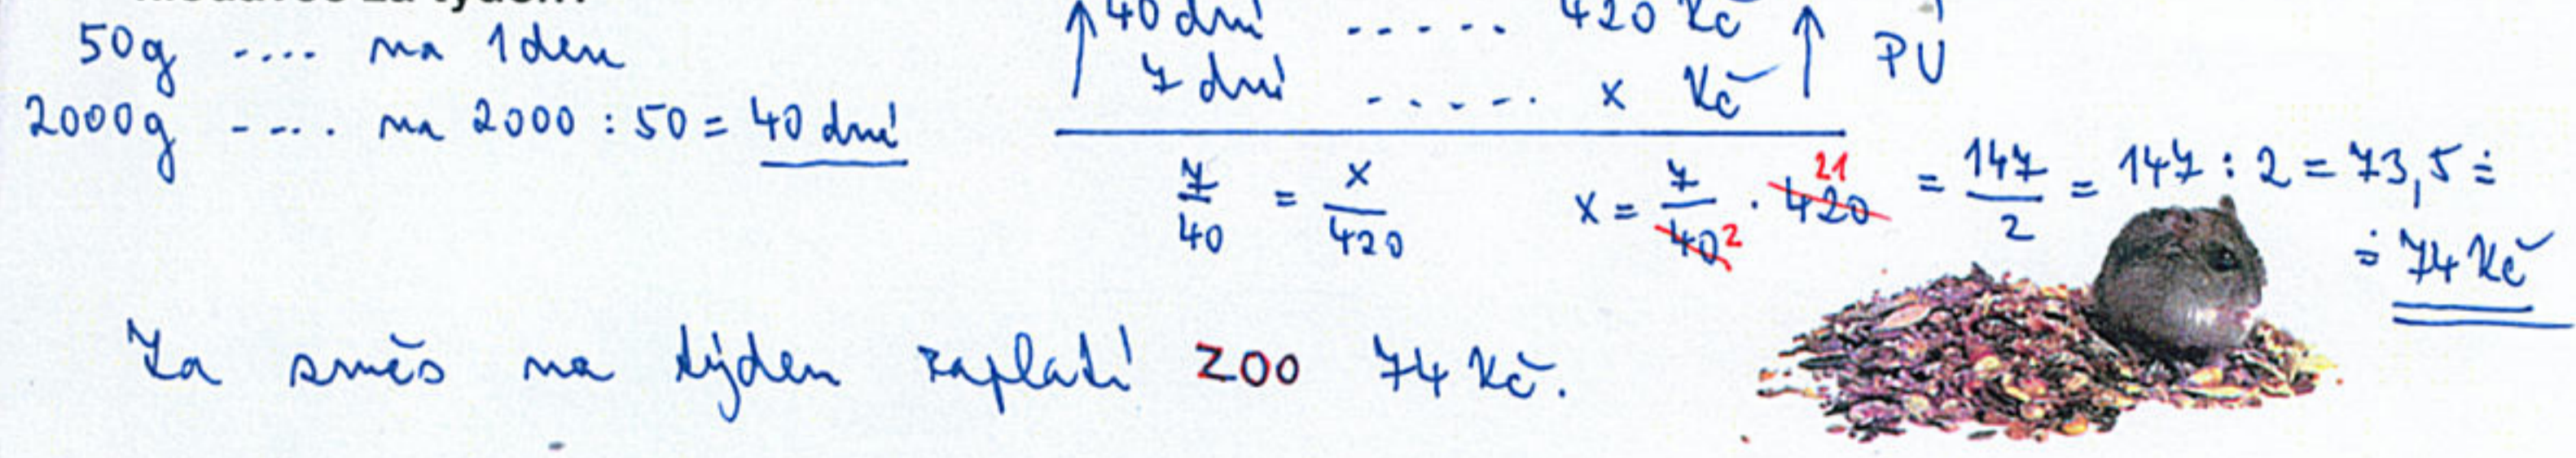 50g .... na 1 den
2000g ---. na 2000 : 50 = 40 dní
↑ 40 dní ----- 420 Kč ↑ PÚ
7 dní ----- x Kč
7/40 = x/420 x = 7/40 2 · 420 21 = 147/2 = 147 : 2 = 73,5 ≐
≐ 74 Kč
Za směs na týden zaplatí ZOO 74 Kč.